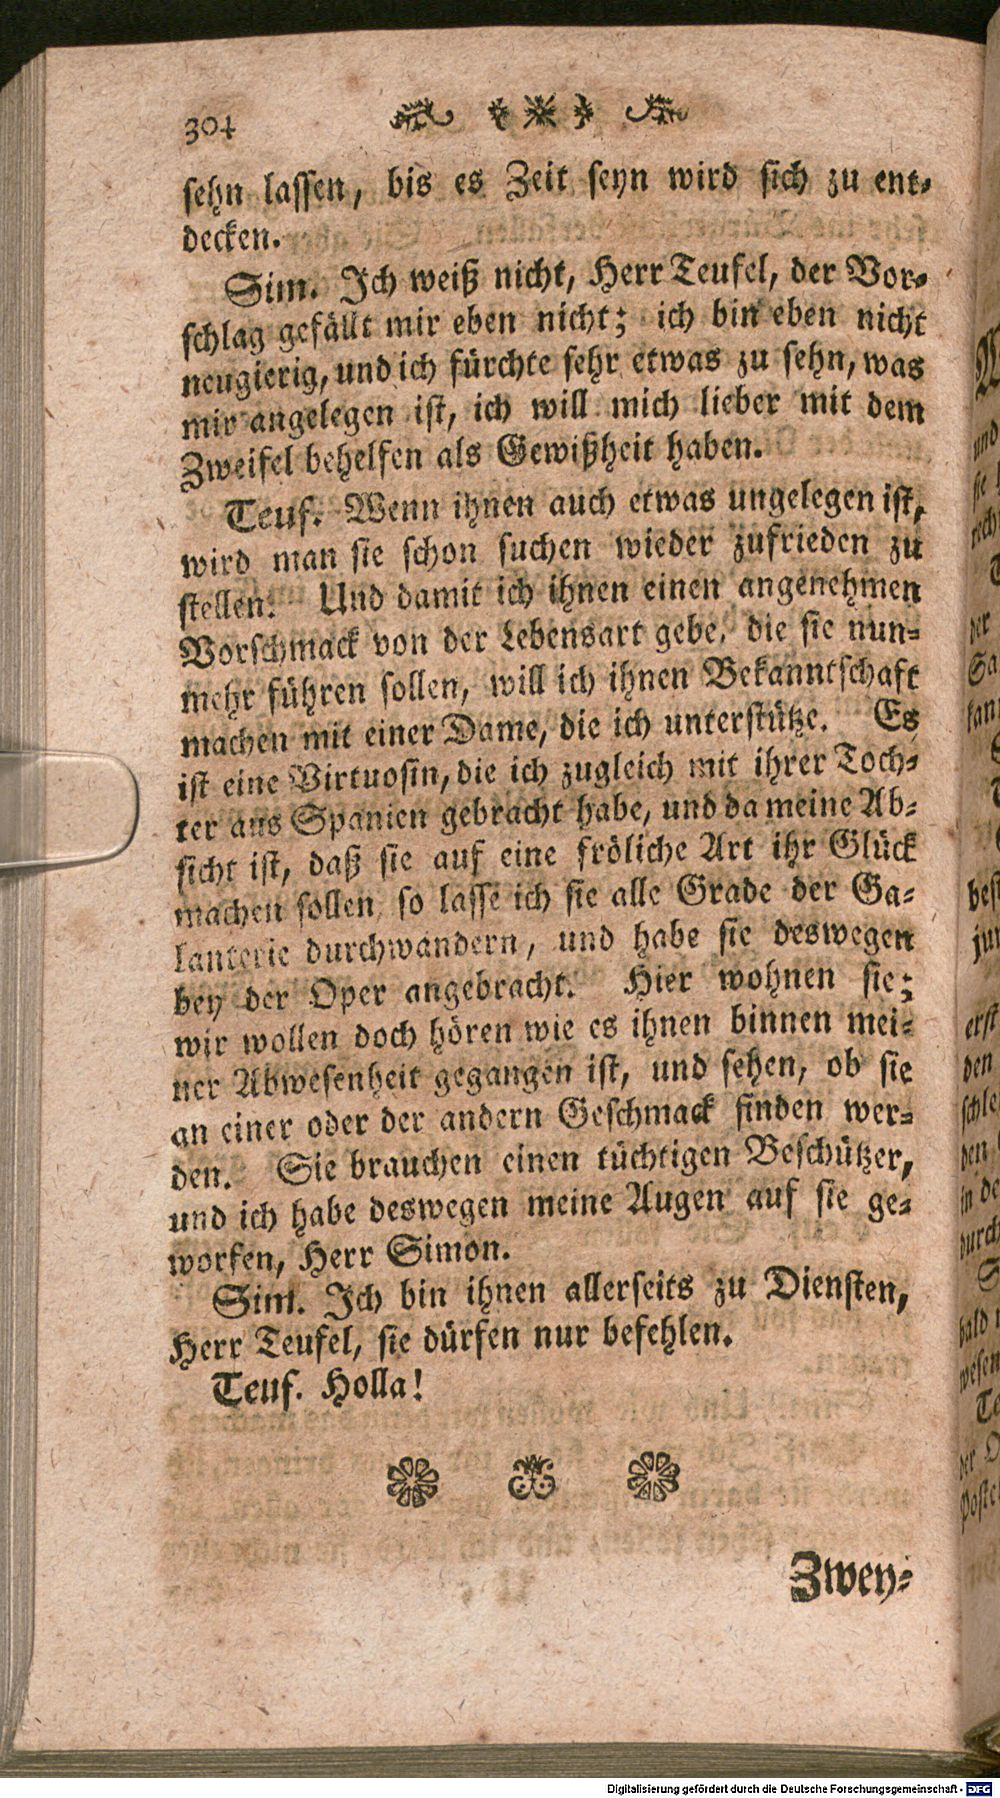 304
sehn lassen, bis es Zeit seyn wird sich zu ent-
decken.
Sim. Ich weiß nicht, Herr Teufel, der Vor-
schlag gefällt mir eben nicht; ich bin eben nicht
neugierig, und ich fürchte sehr etwas zu sehn, was
mir angelegen ist, ich will mich lieber mit dem
Zweifel behelfen als Gewißheit haben.
Teuf. Wenn ihnen auch etwas ungelegen ist,
wird man sie schon suchen wieder zufrieden zu
stellen. Und damit ich ihnen einen angenehmen
Vorschmack von der Lebensart gebe, die sie nun-
mehr führen sollen, will ich ihnen Bekanntschaft
machen mit einer Dame, die ich unterstütze. Es
ist eine Virtuosin, die ich zugleich mit ihrer Toch-
ter aus Spanien gebracht habe, und da meine Ab-
sicht ist, daß sie auf eine fröliche Art ihr Glück
machen sollen, so lasse ich sie alle Grade der Ga-
lanterie durchwandern, und habe sie deswegen
bey der Oper angebracht. Hier wohnen sie;
wir wollen doch hören wie es ihnen binnen mei-
ner Abwesenheit gegangen ist, und sehen, ob sie
an einer oder der andern Geschmack finden wer-
den. Sie brauchen einen tüchtigen Beschützer,
und ich habe deswegen meine Augen auf sie ge-
worfen, Herr Simon.
Sim. Ich bin ihnen allerseits zu Diensten,
Herr Teufel, sie dürfen nur befehlen.
Teuf. Holla!
Zwey-
Digitalisierung gefördert durch die Deutsche Forschungsgemeinschaft - DFG